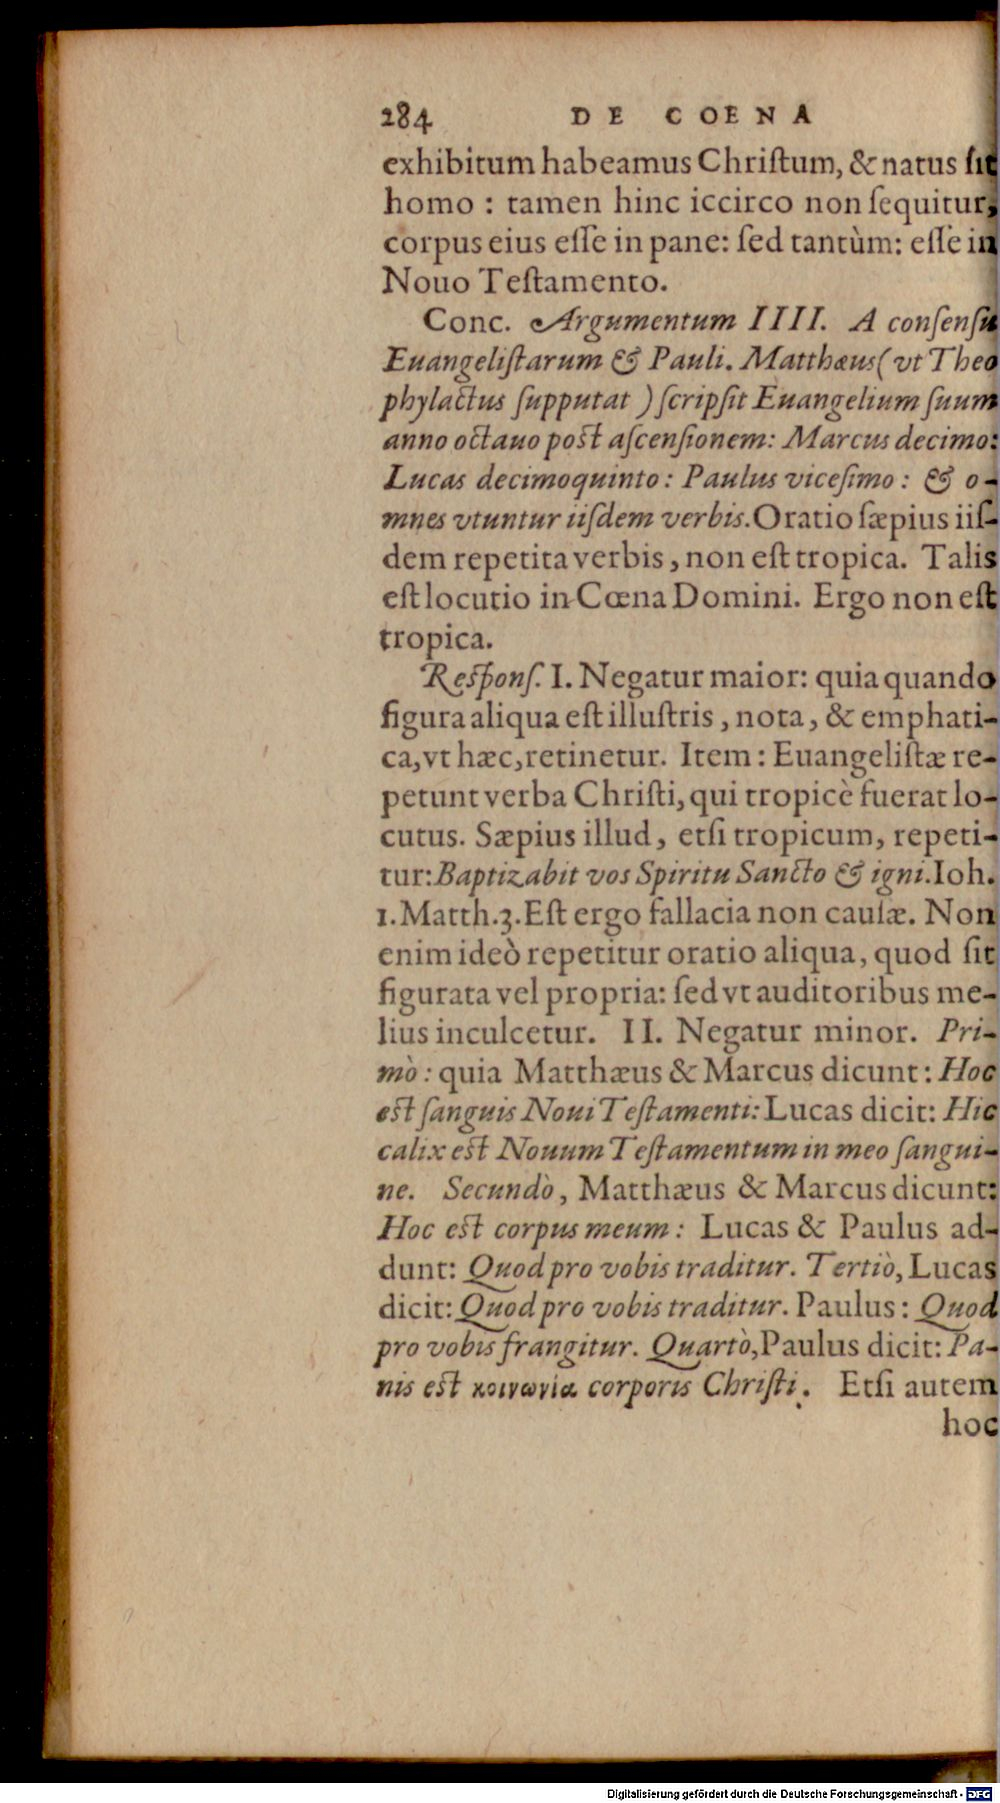 284 DE COENA
exhibitum habeamus Chriſtum, & natus ſit
homo : tamen hinc iccirco non ſequitur,
corpus eius eſſe in pane: ſed tantùm: eſſe in
Nouo Teſtamento.
Conc. Argumentum IIII. A conſenſu
Euangeliſtarum & Pauli. Matthæus ( vt Theo
phylactus ſupputat ) ſcripſit Euangelium ſuum
anno octauo poſt aſcenſionem: Marcus decimo:
Lucas decimoquinto: Paulus viceſimo: & o-
mnes vtuntur iiſdem verbis. Oratio ſæpius iiſ-
dem repetita verbis, non eſt tropica. Talis
eſt locutio in Cœna Domini. Ergo non eſt
tropica.
Reſponſ. I. Negatur maior: quia quando
figura aliqua eſt illuſtris, nota, & emphati-
ca, vt hæc, retinetur. Item: Euangeliſtæ re-
petunt verba Chriſti, qui tropicè fuerat lo-
cutus. Sæpius illud, etſi tropicum, repeti-
tur: Baptizabit vos Spiritu Sancto & igni. Ioh.
1. Matth. 3. Eſt ergo fallacia non cauſæ. Non
enim ideò repetitur oratio aliqua, quod ſit
figurata vel propria: ſed vt auditoribus me-
lius inculcetur. II. Negatur minor. Pri-
mò: quia Matthæus & Marcus dicunt: Hoc
eſt ſanguis Noui Teſtamenti: Lucas dicit: Hic
calix eſt Nouum Teſtamentum in meo ſangui-
ne. Secundò, Matthæus & Marcus dicunt:
Hoc eſt corpus meum: Lucas & Paulus ad-
dunt: Quod pro vobis traditur. Tertiò, Lucas
dicit: Quod pro vobis traditur. Paulus: Quod
pro vobis frangitur. Quartò, Paulus dicit: Pa-
nis eſt κοινωνία corporis Chriſti. Etſi autem
hoc
Digitalisierung gefördert durch die Deutsche Forschungsgemeinschaft - DFG